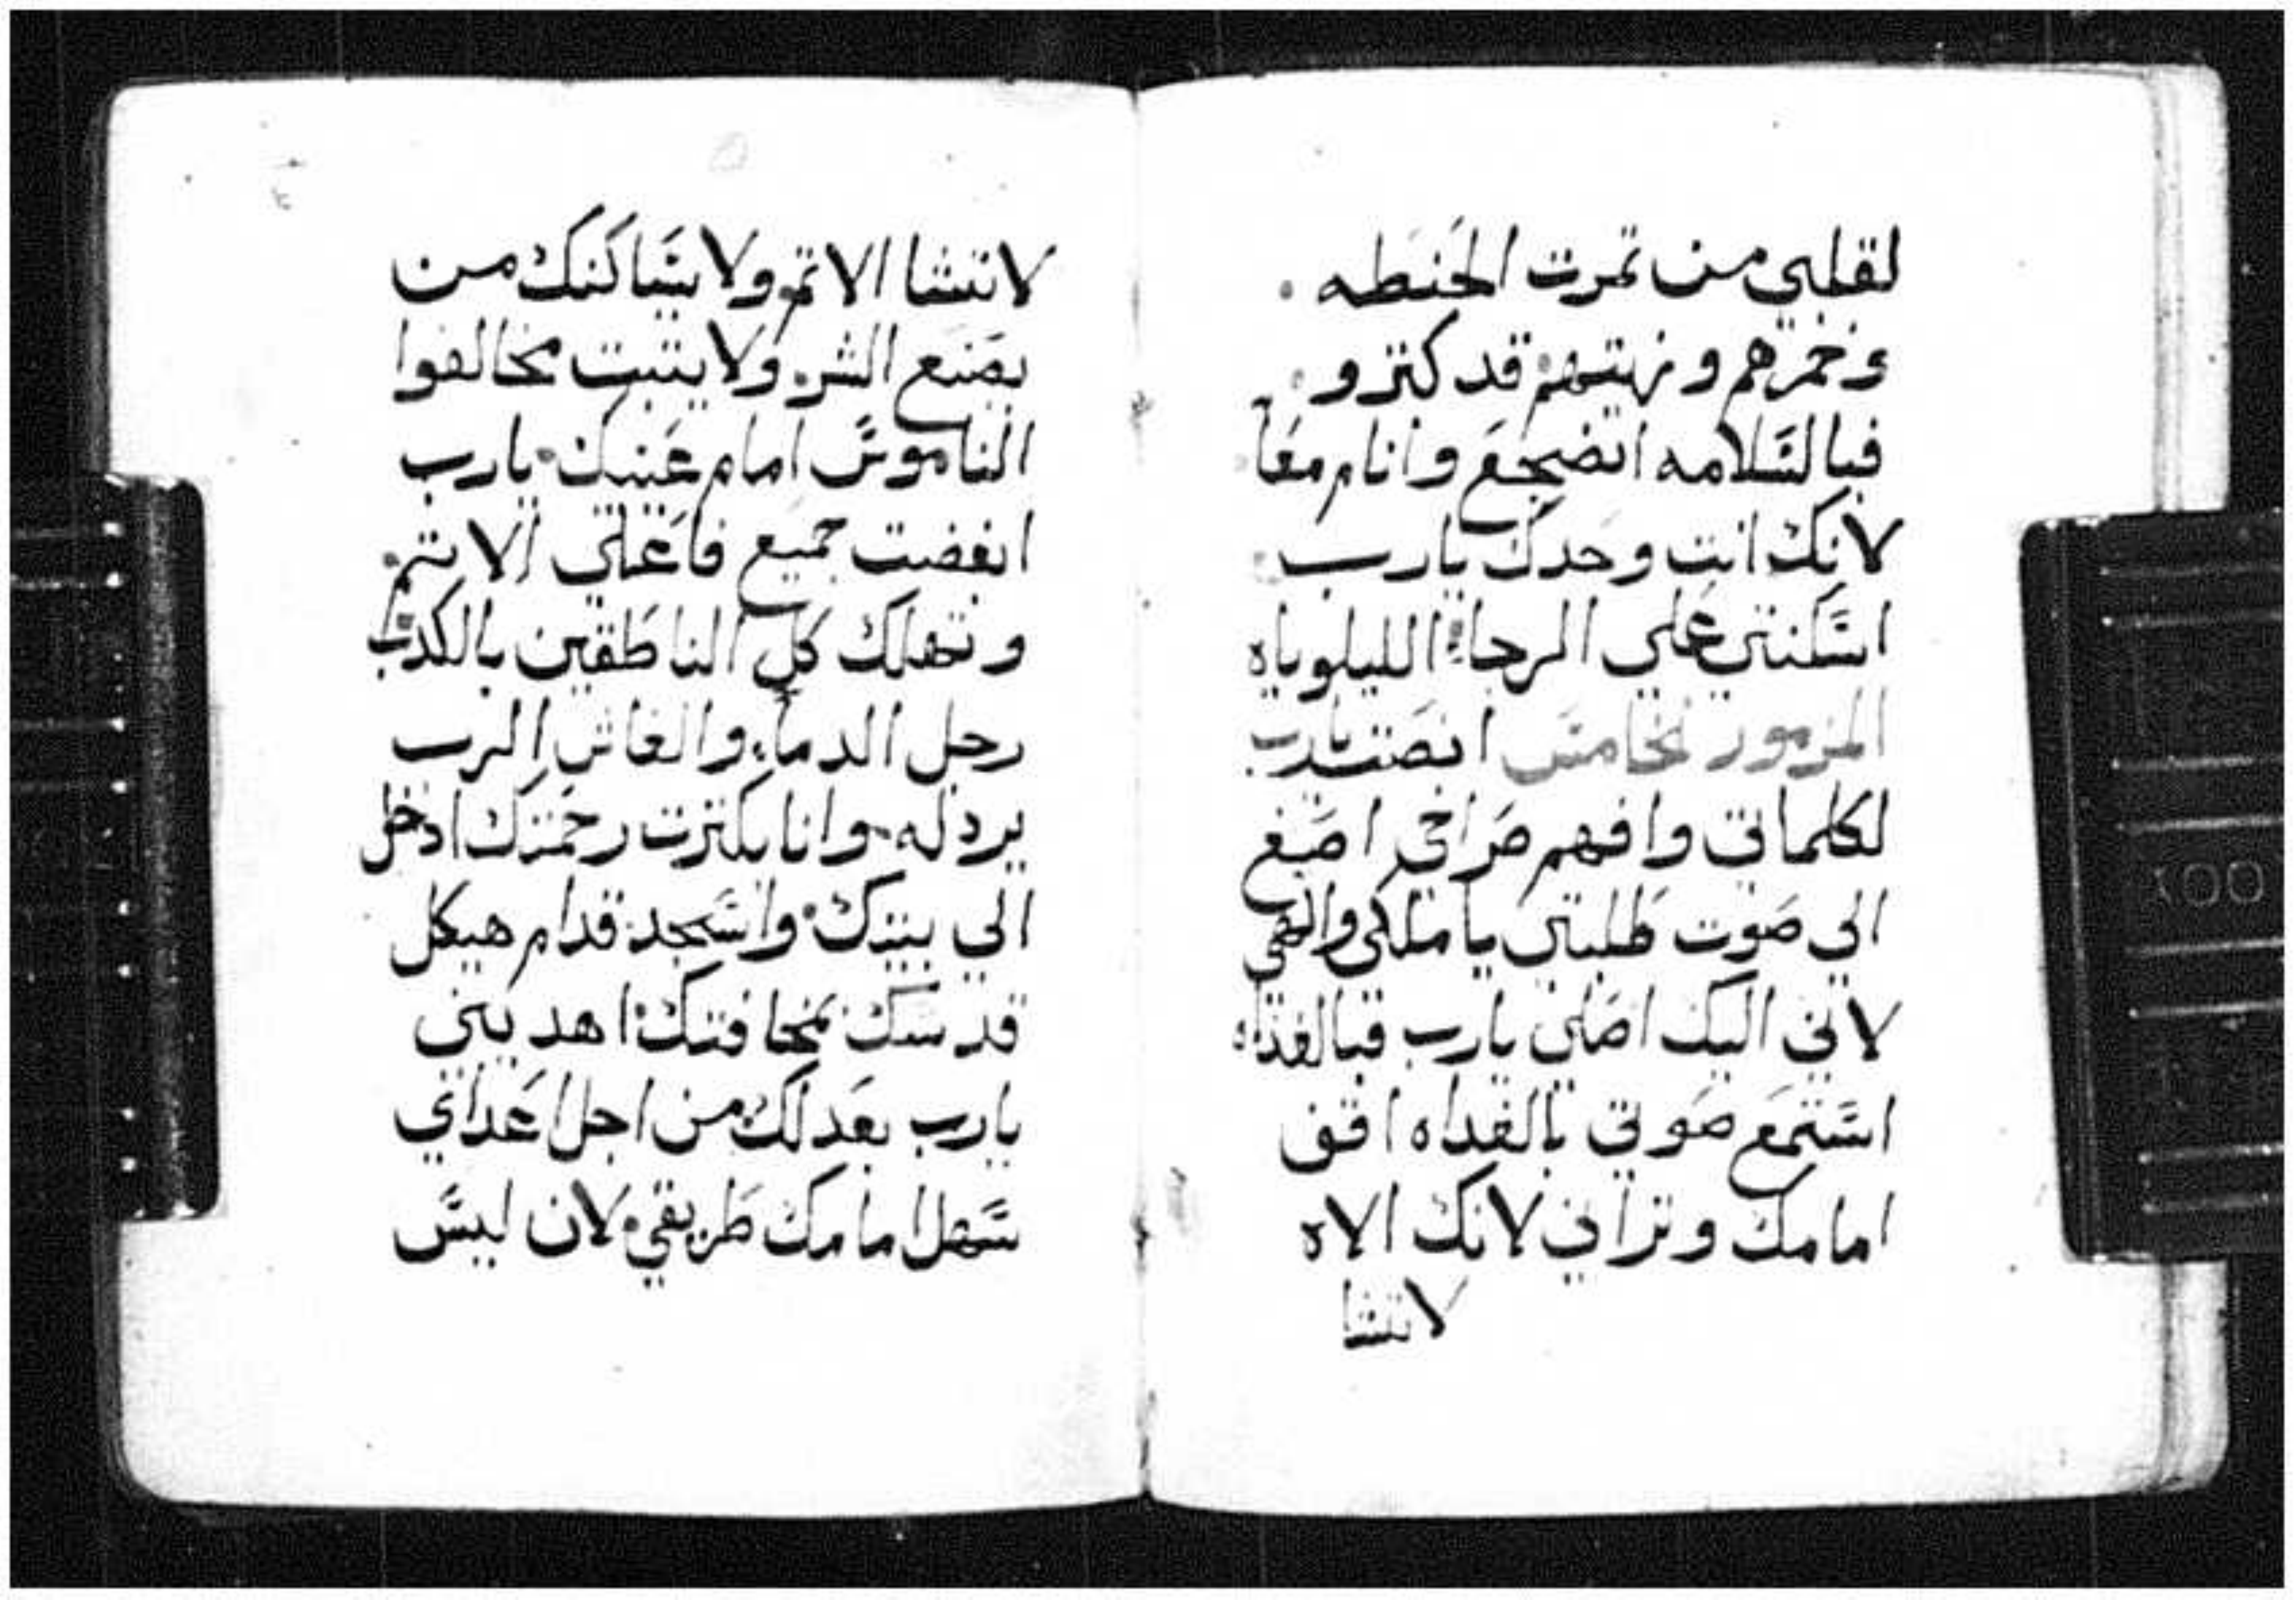 لقلبي من تمرت الحنطه
وخمرهم وزيتهم قد كترو
فبالسلامه اتضجع وانام معا
لانك انت وحدك يارب
اسكنتني علي الرجاء الليلوياه
المزمور الخامس انصت يارب
لكلماتي وافهم صراخي اصغ
الي صوت طلبتي يا ملكي والهي
لاني اليك اصلي يارب فبالغداه
استمع صوتي بالغداه اقف
امامك وتراني لانك الاه
لاتشا
لاتشا الاتم ولا يساكنك من
يصنع الشر ولا يتبت مخالفوا
الناموس امام عينيك يارب
ابغضت جميع فاعلي الاتم
وتهلك كل الناطقين بالكدب
رجل الدماء والغاش الرب
يردله وانا بكترت رحمتك ادخل
الي بيتك واسجد قدام هيكل
قدسك بمخافتك اهديني
يارب بعدلك من اجل اعداي
سهل امامك طريقي لان ليس